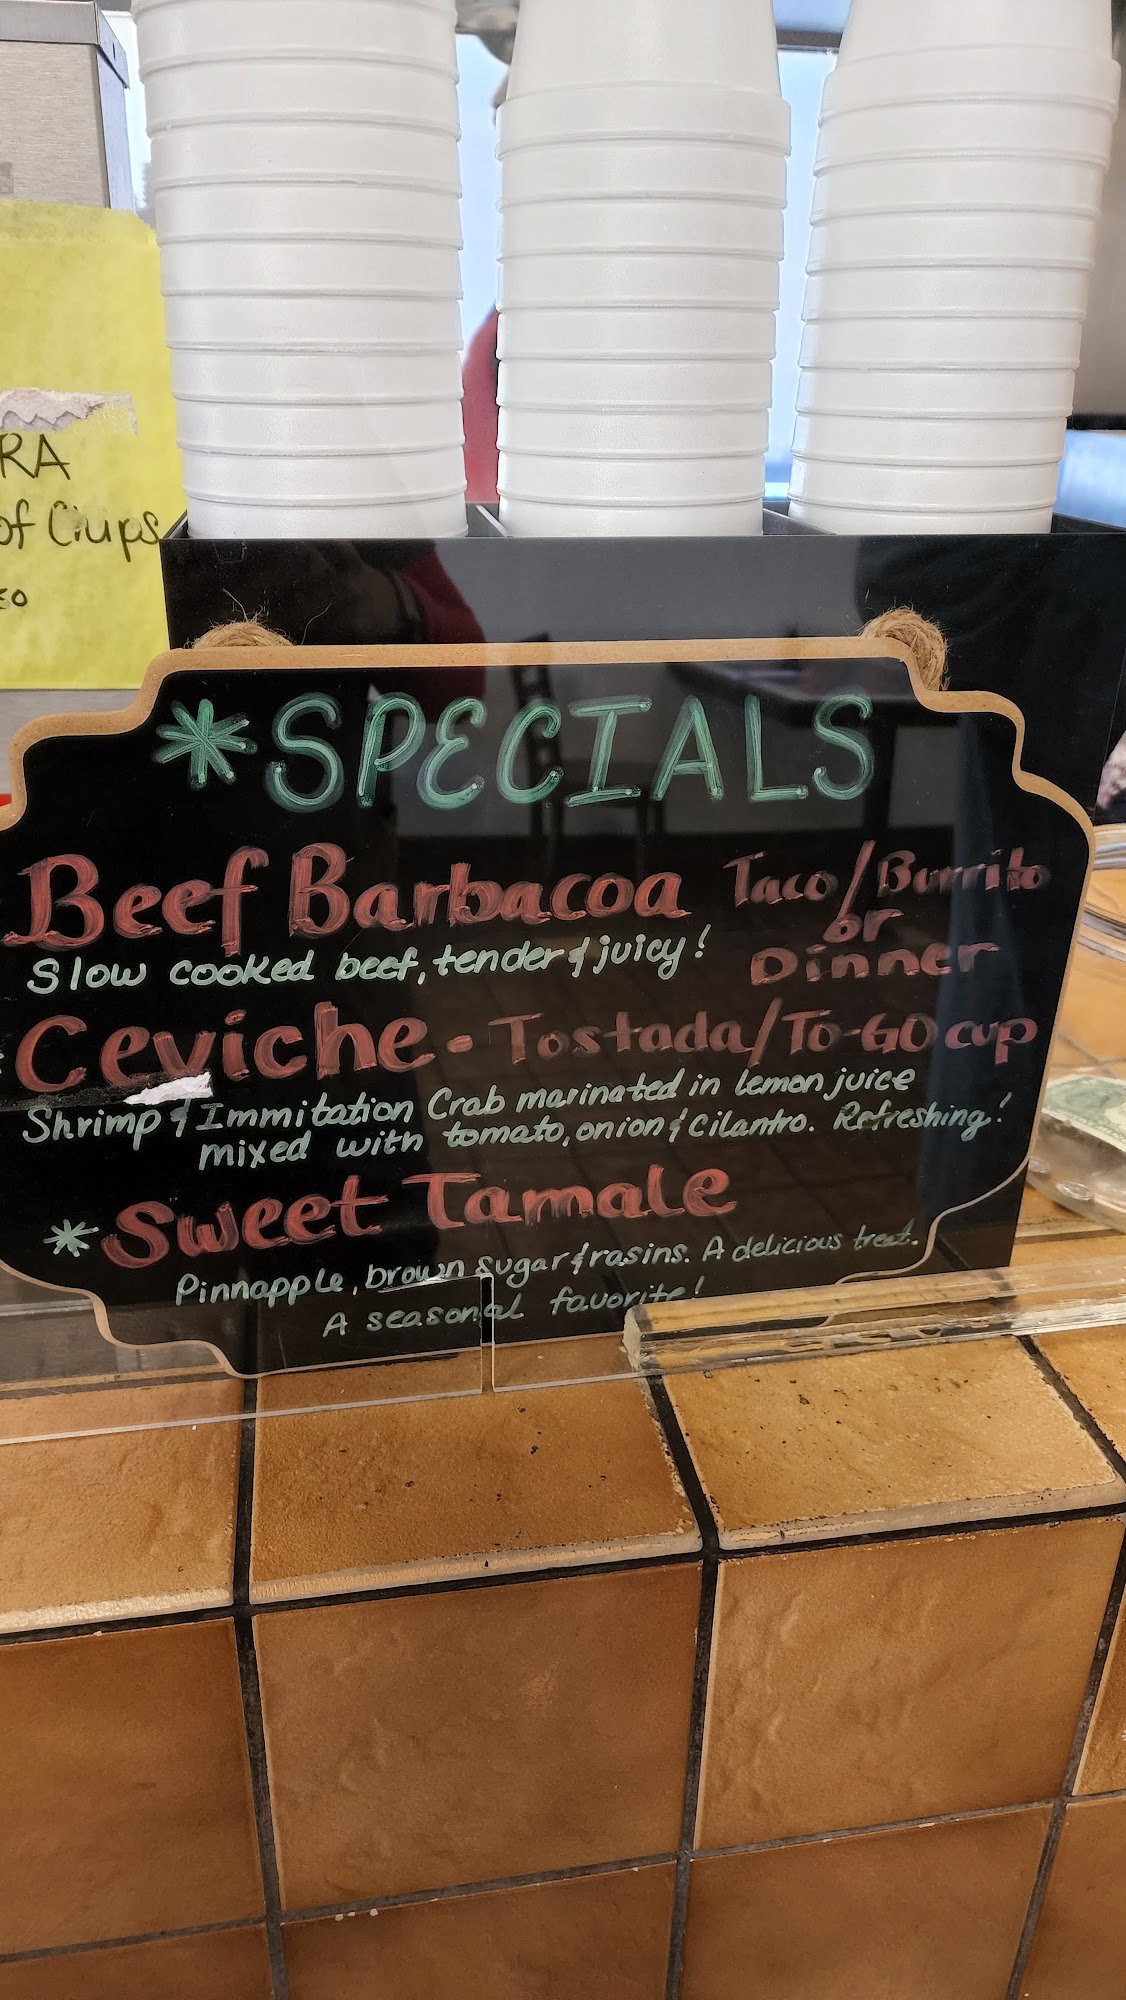 RA
of Chips
EO
*SPECIALS
Beef Barbacoa Taco/Burrito
or
Dinner
Slow cooked beef, tender & juicy!
Ceviche - Tostada/To-GO cup
Shrimp & Immitation Crab marinated in lemon juice
mixed with tomato, onion & Cilantro. Refreshing!
*Sweet Tamale
Pinnapple, brown sugar & rasins. A delicious treat.
A seasonal favorite!